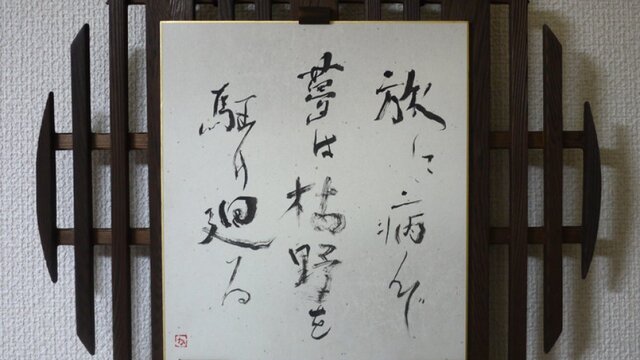 旅に病んで
夢は枯野を
駈り廻る